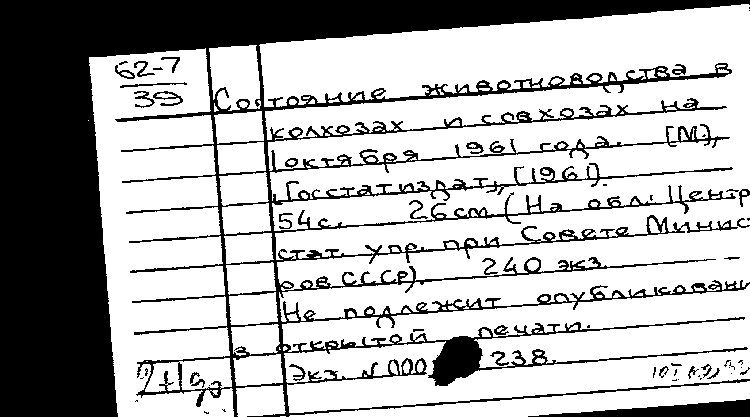 62-7
39
Состояние животноводства в
колхозах и совхозах на
1 октября 1961 года. [М],
"Госстатиздат", [1961].
54 с. 26 см (На обл.: Центр.
стат. упр. при Совете Минист
ров СССР). 240 экз.
Не подлежит опубликовани
в открытой печати.
Экз. №000 238.